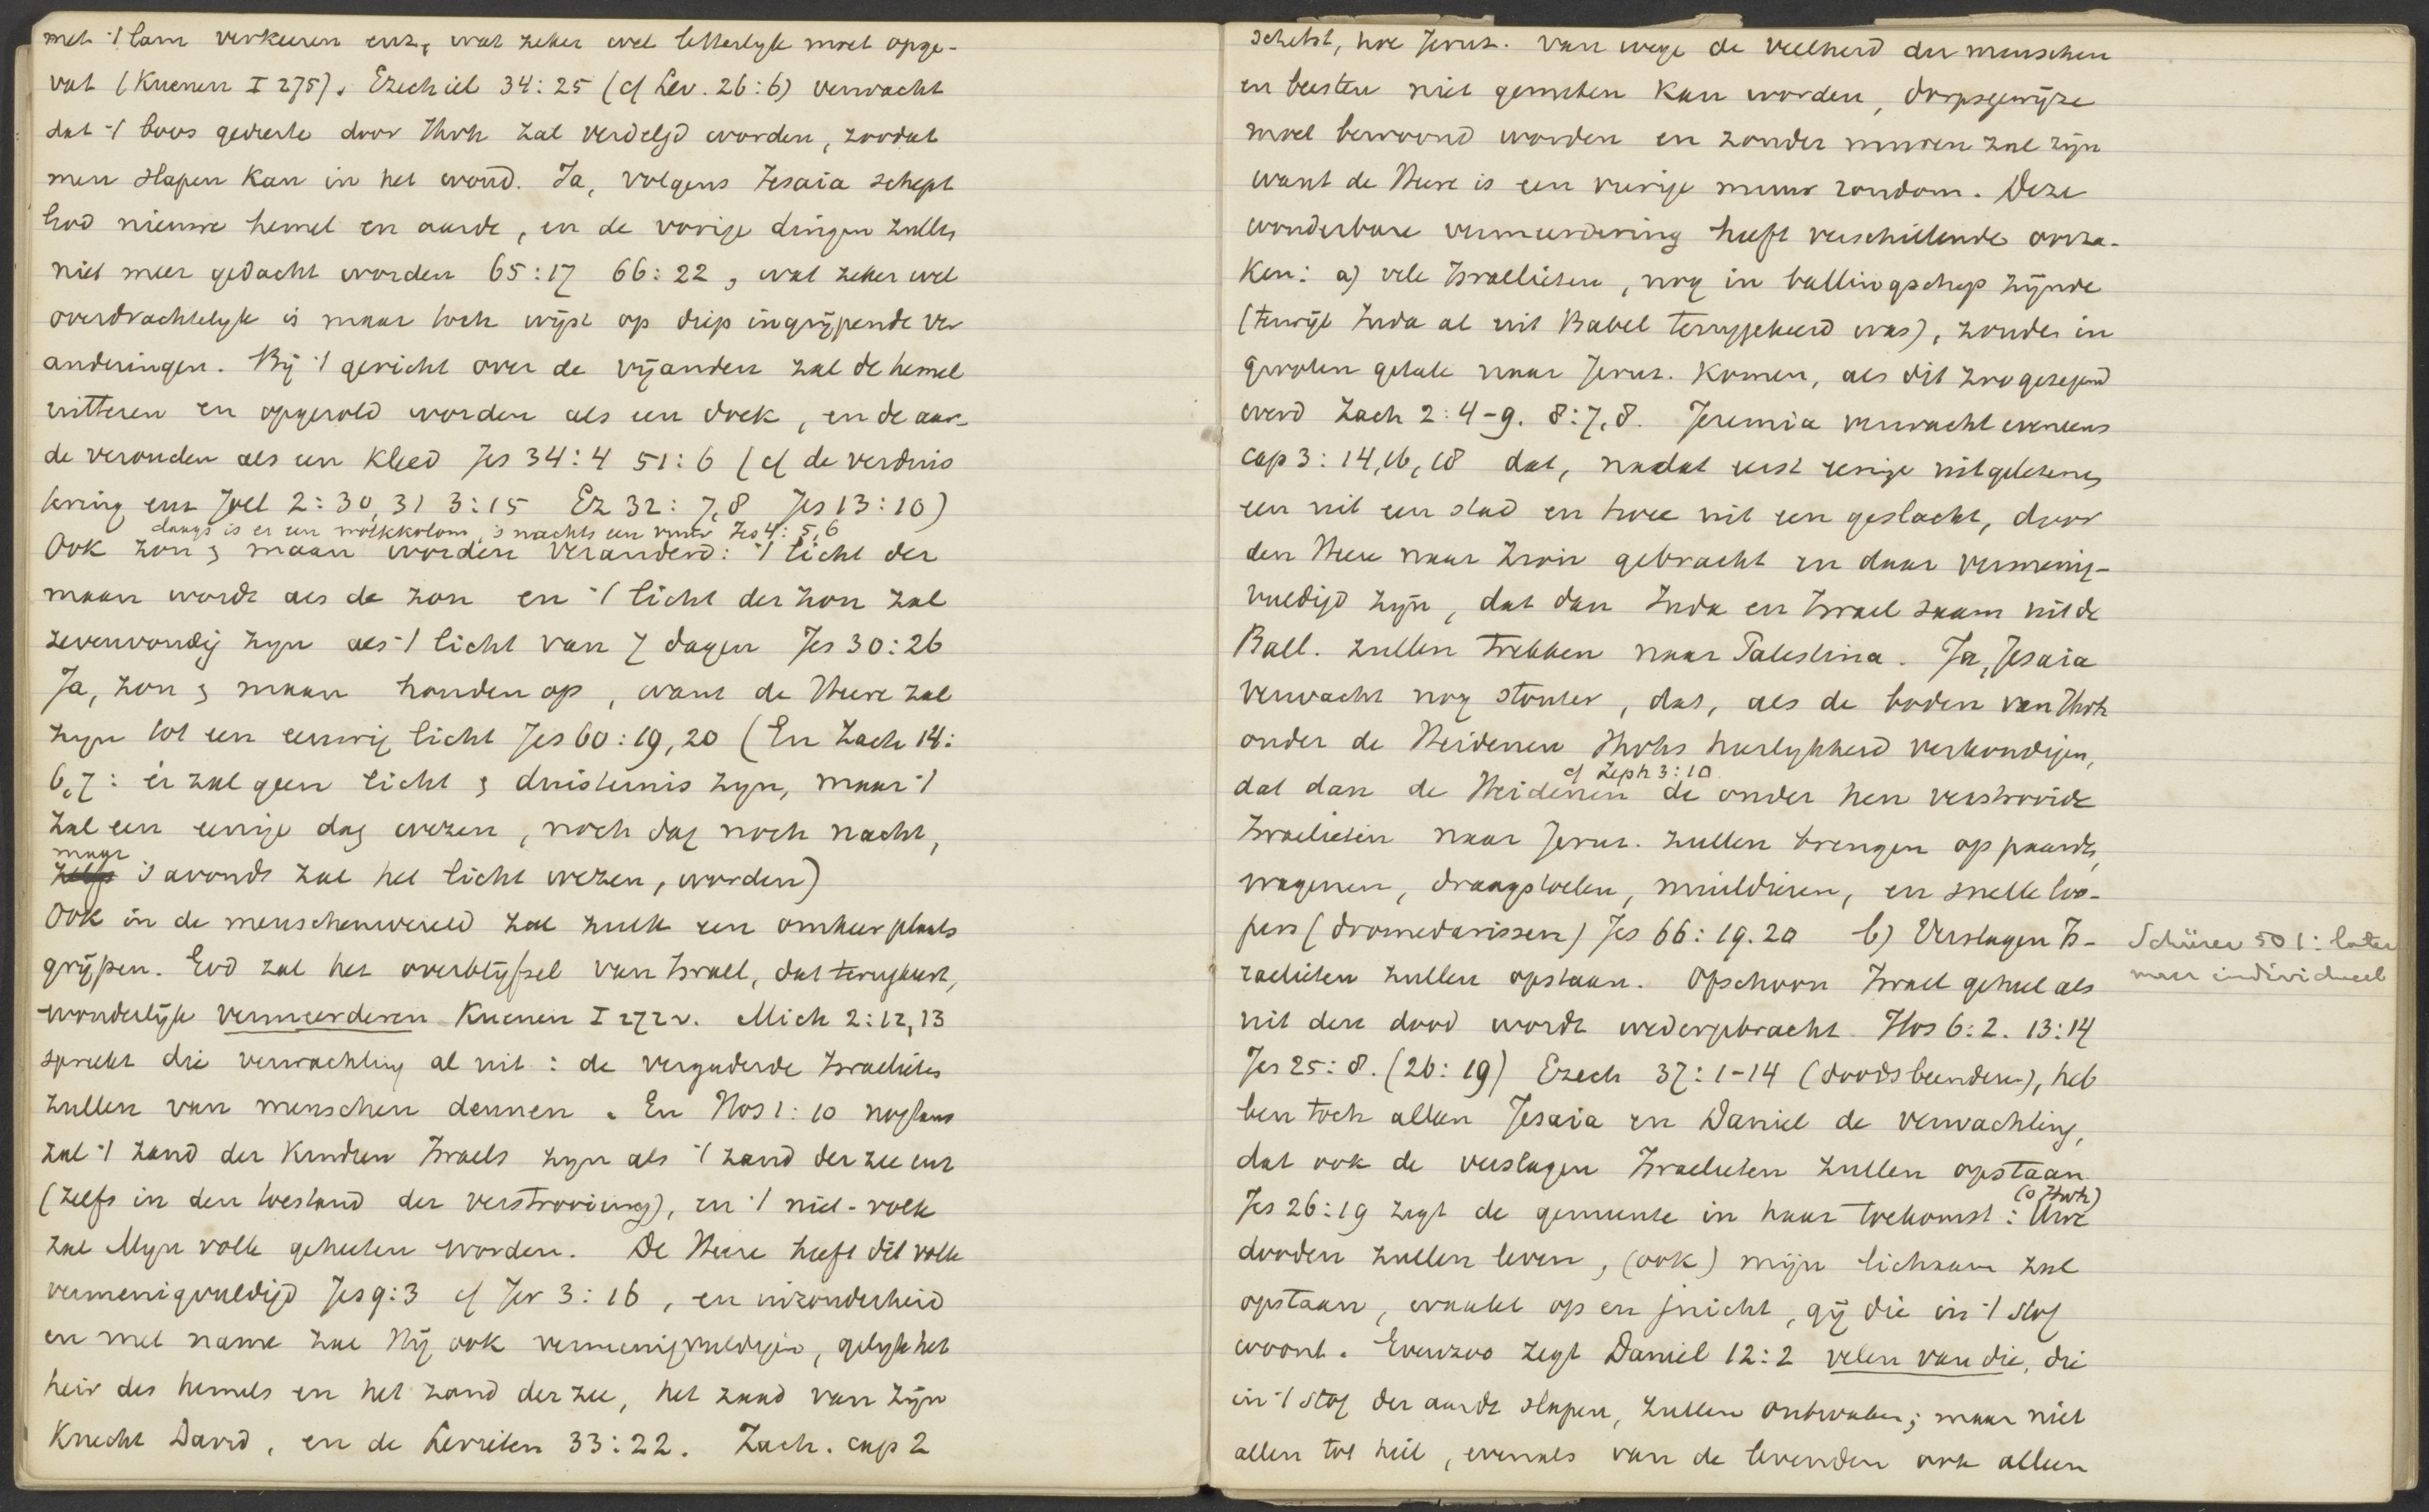 met 't lam verkeeren enz, wat zeker wel letterlijk moet opge-
vat (Kuenen I 275). Ezechiel 34:25 (cf Lev. 26:6) verwacht
dat 't boos gedierte door Jhvh zal verdelgd worden, zoodat
men slapen kan in het woud. Ja, volgens Jesaia schept
God nieuwe hemel en aarde, en de vorige dingen zullen
niet meer gedacht worden 65:17 66:22, wat zeker wel
overdrachtelijk is maar toch wijst op diep ingrijpende ver
anderingen. Bij 't gericht over de vijanden zal de hemel
uitteren en opgerold worden als een doek, en de aar-
de verouden als een kleed Jes 34:4 51:6 (cf de verduis
tering enz Joel 2:30,31 3:15 Ez 32:7,8 Jes 13:10)
daags is er een wolkkolom, 's nachts een vuur Jes 4:5,6
Ook zon & maan worden veranderd: 't licht der
maan wordt als de zon en 't licht der zon zal
zevenvoudig zijn als 't licht van 7 dagen Jes 30:26
Ja, zon & maan houden op, want de Heere zal
zijn tot een eeuwig licht Jes 60:19,20 (En Zach 14:
6,7: er zal geen licht & duisternis zijn, maar 't
zal een eenige dag wezen, noch dag noch nacht,
maar
zelfs 's avonds zal het licht wezen, worden)
Ook in de menschenwereld zal zulk een omkeer plaats
grijpen. God zal het overblijfsel van Israel, dat terugkeert,
wonderlijk vermeerderen Kuenen I 272v. Mich 2:12,13
spreekt die verwachting al uit: de vergaderde Israelieten
zullen van menschen deunen. En Hos 1:10 nogtans
zal 't zand der kinderen Israels zijn als 't zand der zee enz
(zelfs in den toestand der verstrooiing), en 't niet-volk
zal Mijn volk geheeten worden. De Heere heeft dit volk
vermenigvuldigd Jes 9:3 cf Jer 3:16, en inzonderheid
en met name zal Hij ook vermenigvuldigen, gelijk het
heir des hemels en het zand der zee, het zaad van zijn
Knecht David, en de Levieten 33:22. Zach. cap 2
schetst, hoe Jeruz. van wege de veelheid der menschen
en beesten niet gemeten kan worden, dorpsgewijze
moet bewoond worden en zonder muren zal zijn
want de Heere is een vurige muur rondom. Deze
wonderbare vermeerdering heeft verschillende oorza-
ken: a) vele Israelieten, nog in ballingschap zijnde
(terwijl Juda al uit Babel teruggekeerd was), zouden in
grooten getale naar Jeruz. komen, als dit zoo gezegend
werd Zach 2:4-9. 8:7,8. Jeremia verwacht eveneens
cap 3:14,16,18 dat, nadat eerst eenige uitgelezenen
een uit een stad en twee uit een geslacht, door
den Heere naar Zion gebracht en daar vermenig-
vuldigd zijn, dat dan Juda en Israel saam uit de
Ball. zullen trekken naar Palestina. Ja, Jesaia
verwacht nog stouter, dat, als de boden van Jhvh
onder de Heidenen Jhvhs heerlijkheid verkondigen,
cf Zeph 3:10
dat dan de Heidenen de onder hen verstrooide
Israelieten naar Jeruz. zullen brengen op paarden,
wagenen, draagstoelen, muildieren, en snelle loo-
pers (dromedarissen) Jes 66:19.20 b) Verslagen Is-
raelieten zullen opstaan. Ofschoon Israel geheel als
uit den dood wordt wedergebracht Hos 6:2. 13:14
Jes 25:8. (26:19) Ezech 37:1-14 (doodsbeenderen), heb
ben toch alleen Jesaia en Daniel de verwachting,
dat ook de verslagen Israelieten zullen opstaan
(o Jhvh)
Jes 26:19 zegt de gemeente in haar toekomst: Uwe
dooden zullen leven, (ook) mijn lichaam zal
opstaan, waakt op en juicht, gij die in 't stof
woont. Evenzoo zegt Daniel 12:2 velen van die, die
in 't stof der aarde slapen, zullen ontwaken; maar niet
allen tot heil, evenals van de levenden ook alleen
Schürer 501: later
meer individueel